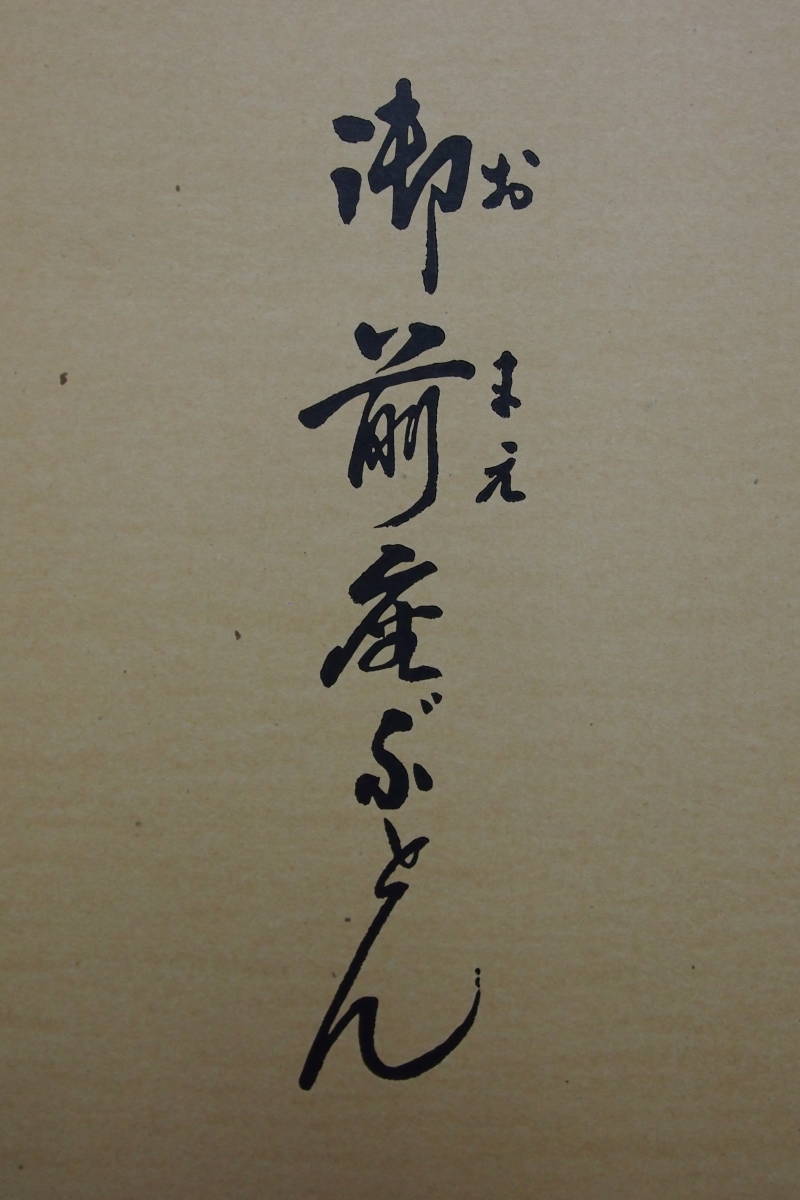 御前座ぶとん
おまえ